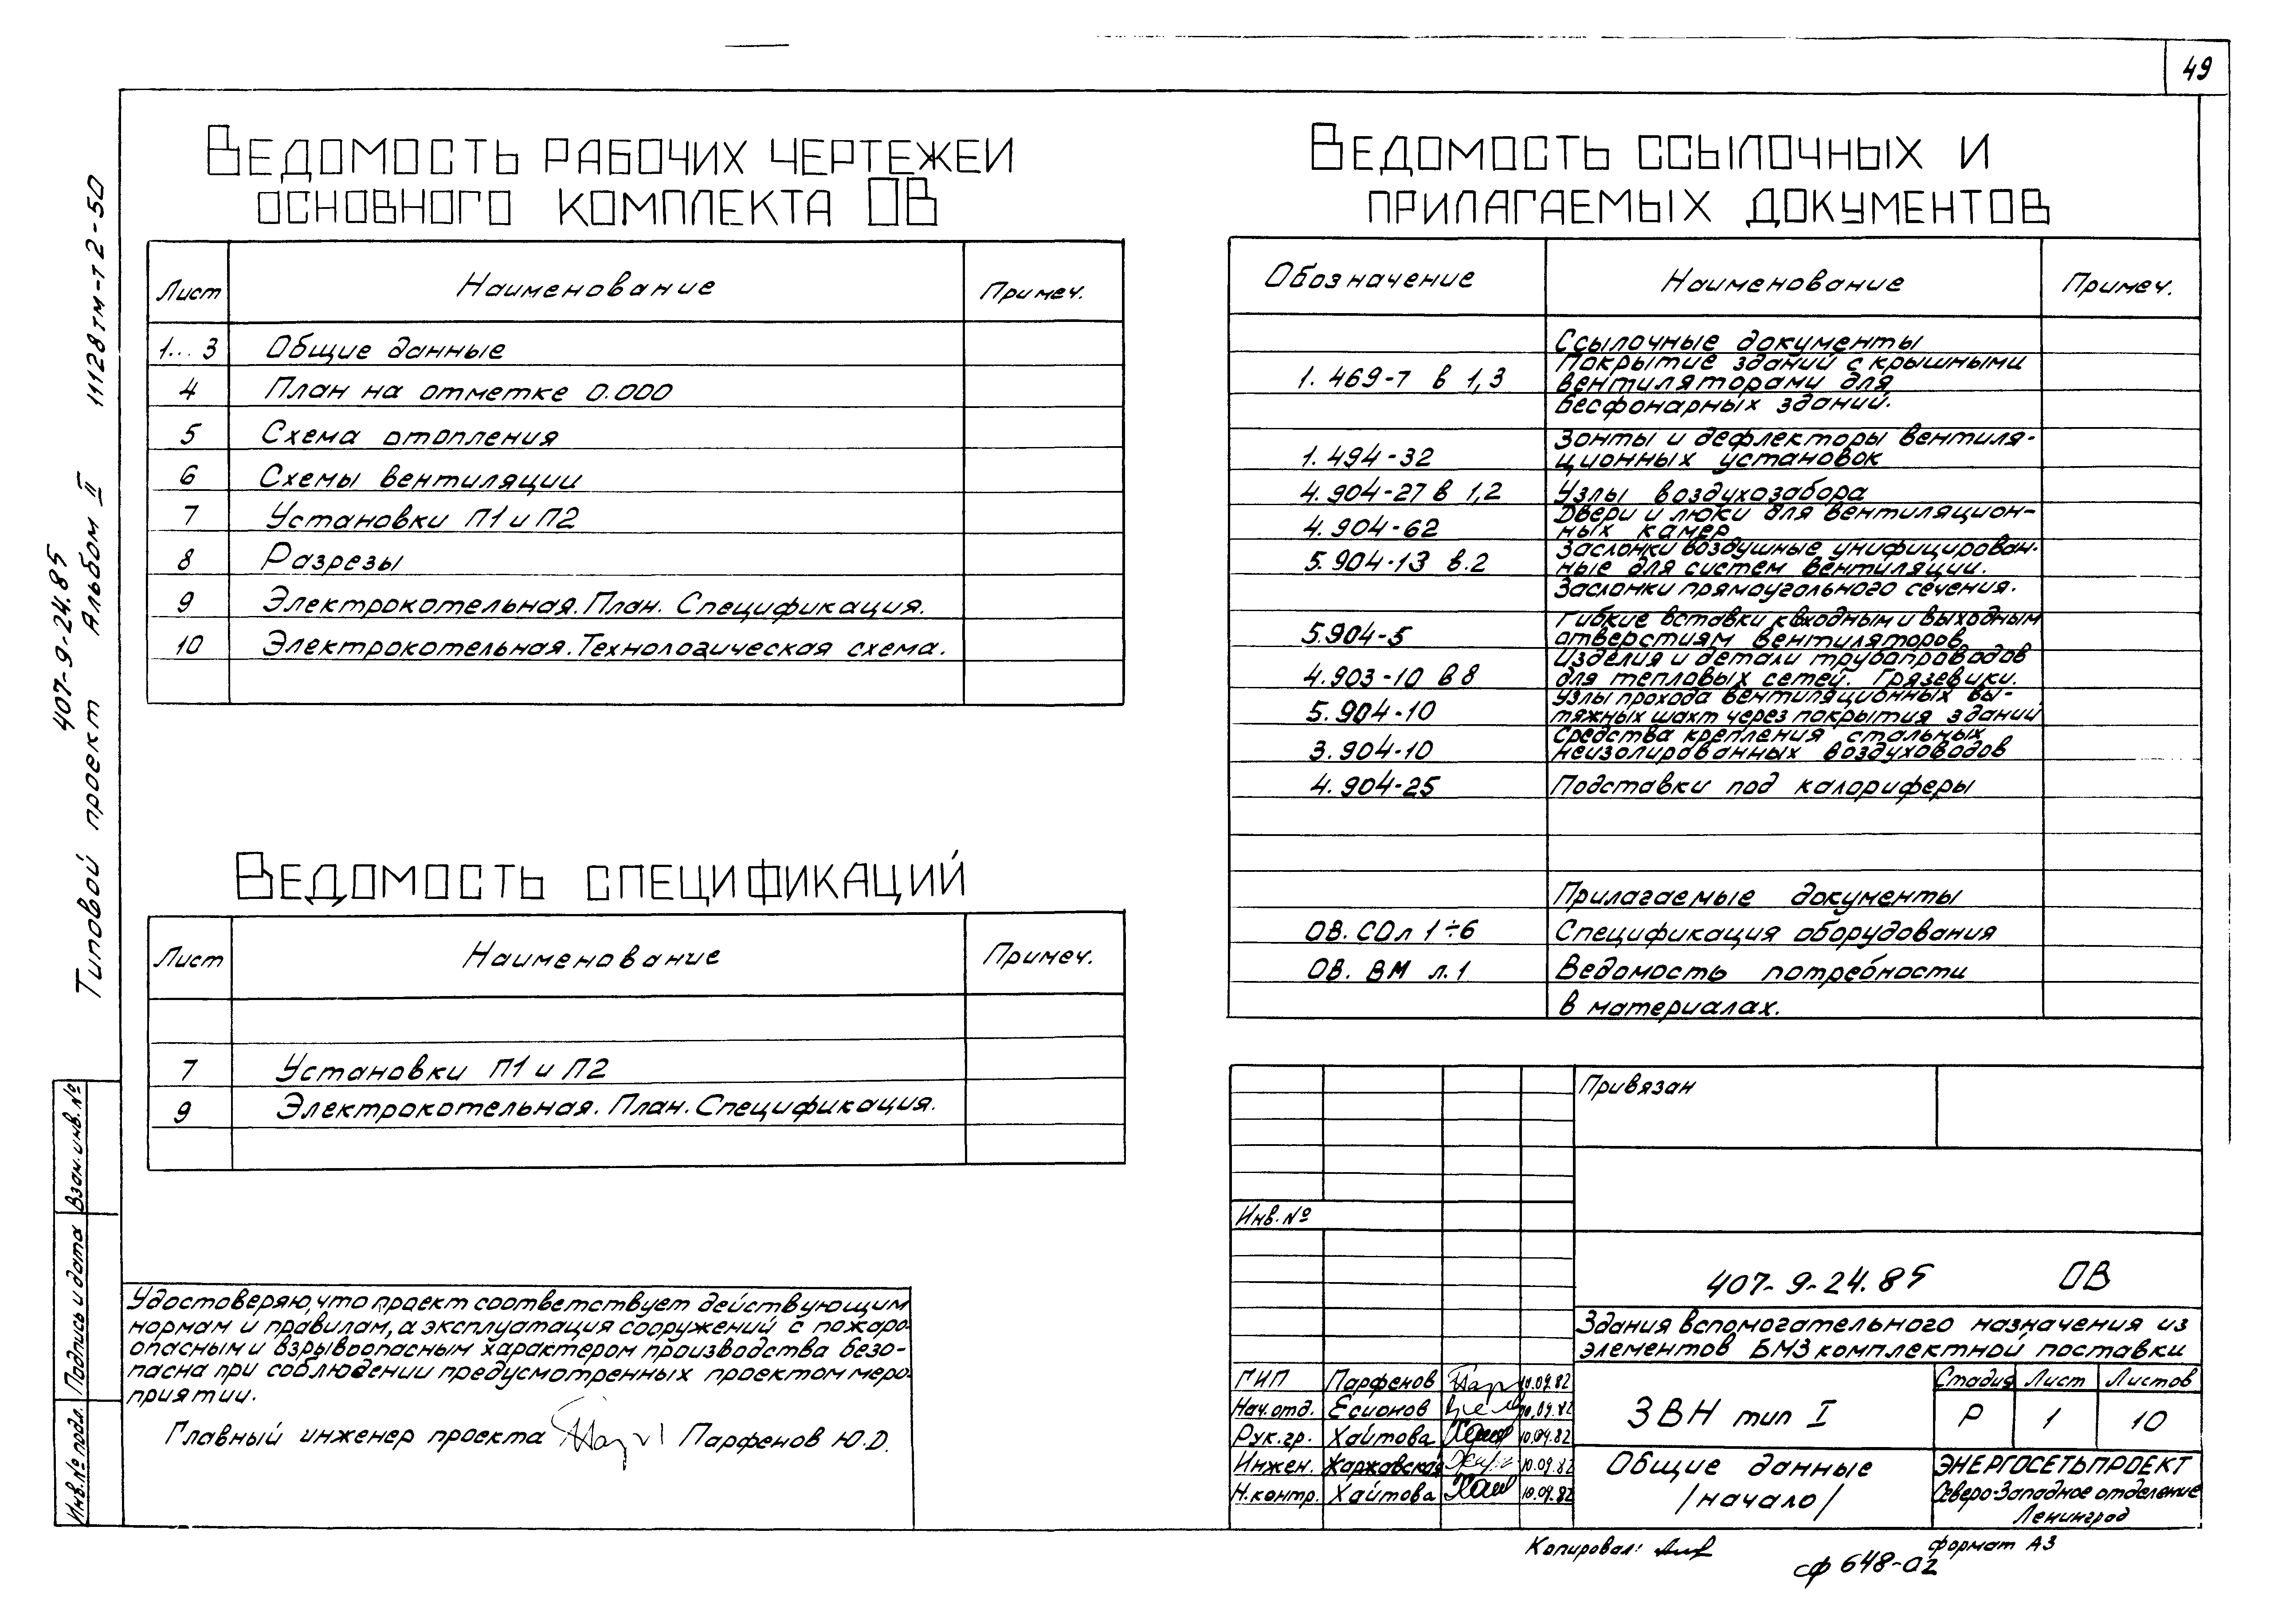 49
Ведомость рабочих чертежей
основного комплекта ОВ
Лист Наименование Примеч.
1...3 Общие данные
4 План на отметке 0.000
5 Схема отопления
6 Схемы вентиляции
7 Установки П1 и П2
8 Разрезы
9 Электрокотельная. План. Спецификация.
10 Электрокотельная. Технологическая схема.
Ведомость спецификаций
Лист Наименование Примеч.
7 Установки П1 и П2
9 Электрокотельная. План. Спецификация.
Удостоверяю, что проект соответствует действующим
нормам и правилам, а эксплуатация сооружений с пожаро-
опасным и взрывоопасным характером производства безо-
пасна при соблюдении предусмотренных проектом меро-
приятий.
Главный инженер проекта Парфенов Ю.Д.
Ведомость ссылочных и
прилагаемых документов
Обозначение Наименование Примеч.
Ссылочные документы
1.469-7 в 1,3 Покрытие зданий с крышными
вентиляторами для
бесфонарных зданий.
Зонты и дефлекторы вентиля-
1.494-32 ционных установок
4.904-27 в 1,2 Узлы воздухозабора
4.904-62 Двери и люки для вентиляцион-
ных камер
5.904-13 в.2 Заслонки воздушные унифицирован-
ные для систем вентиляции.
Заслонки прямоугольного сечения.
5.904-5 Гибкие вставки к входным и выходным
отверстиям вентиляторов
4.903-10 в 8 Изделия и детали трубопроводов
для тепловых сетей. Грязевики.
5.904-10 Узлы прохода вентиляционных вы-
тяжных шахт через покрытия зданий
3.904-10 Средства крепления стальных
неизолированных воздуховодов
4.904-25 Подставки под калориферы
Прилагаемые документы
ОВ. СО л 1÷6 Спецификация оборудования
ОВ. ВМ л.1 Ведомость потребности
в материалах.
Привязан
Инв. №
407-9-24.85 ОВ
Здания вспомогательного назначения из
элементов БМЗ комплектной поставки
ГИП Парфенов 10.09.82
Нач.отд. Есионов 10.09.82
Рук.гр. Хаитова 10.09.82
Инжен. Жаржавская 10.09.82
Н.контр. Хаитова 10.09.82
ЗВН тип I
Стадия Лист Листов
Р 1 10
Общие данные
/начало/
ЭНЕРГОСЕТЬПРОЕКТ
Северо-Западное отделение
Ленинград
Копировал:
формат А3
сф 648-02
407-9-24.85
Типовой проект Альбом II 11128тм-т2-50
Взам.инв.№
Подпись и дата
Инв.№ подл.